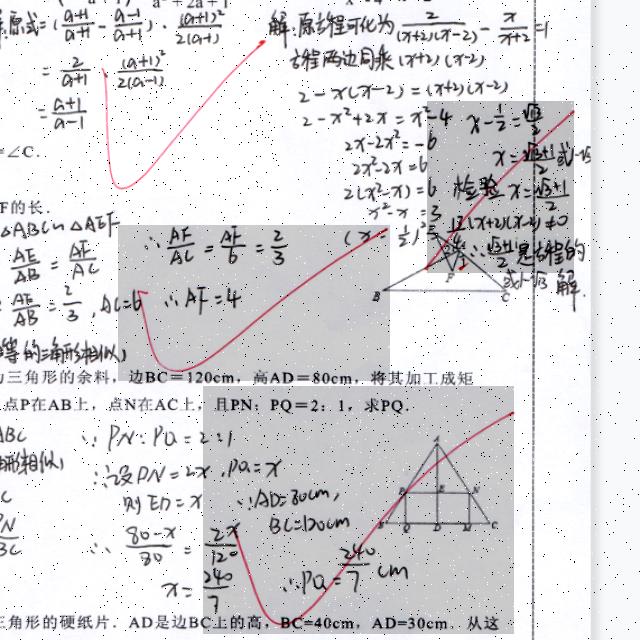 原式=(\frac{a+1}{a+1}-\frac{a-1}{a+1})·\frac{(a+1)^2}{2(a-1)}
=\frac{2}{a+1}·\frac{(a+1)^2}{2(a-1)}
=\frac{a+1}{a-1}
解:原方程可化为\frac{2}{(x+2)(x-2)}-\frac{x}{x+2}=1
方程两边同乘(x+2)(x-2)
2-x(x-2)=(x+2)(x-2)
2-x²+2x=x²-4
2x-2x²=-6
2x²-2x=6
2(x²-x)=6
x²-x=3
x-\frac{1}{2}=\frac{\sqrt{13}}{2}
检验
(x+2)(x-2)≠0
是方程的
解.
=∠C.
F的长.
△ABC∽△AEF
\frac{AE}{AB}=\frac{AF}{AC}
\frac{AE}{AB}=\frac{2}{3},AC=6
∴\frac{AF}{AC}=\frac{AF}{6}=\frac{2}{3}
∴AF=4
等的三角形相似)
B C
三角形的余料，边BC＝120cm，高AD＝80cm，将其加工成矩
点P在AB上，点N在AC上，且PN：PQ＝2：1，求PQ．
ABC
形相似)
C
\frac{PN}{BC}
∵PN:PQ=2:1
∴设PN=2x,PQ=x
则ED=x
∵AD=80cm,
BC=120cm
∴\frac{80-x}{80}=\frac{2x}{120}
x=\frac{240}{7}
∴PQ=\frac{240}{7}cm
三角形的硬纸片．AD是边BC上的高，BC=40cm，AD=30cm．从这